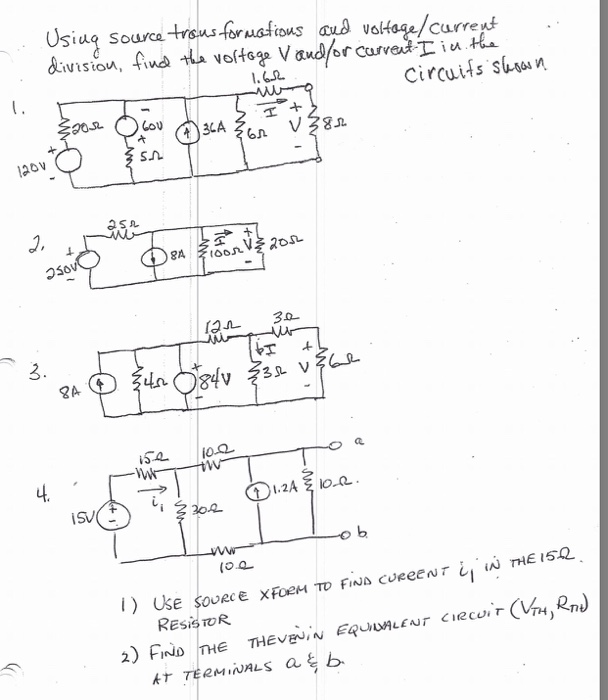 Using source transformations and voltage/current
division, find the voltage V and/or current I in the
circuits shown
1.
1.6Ω
I
+
20Ω
-
60V
+
5Ω
36A
6Ω
V
8Ω
-
+
120V
-
2.
25Ω
+
250V
-
8A
I
100Ω
+
V
-
20Ω
3.
12Ω
3Ω
8A
4Ω
+
84V
-
I
3Ω
+
V
-
6Ω
4.
15Ω
10Ω
a
15V
+
-
i₁
30Ω
1.2A
10Ω.
b
10Ω
1) USE SOURCE XFORM TO FIND CURRENT i₁ IN THE 15Ω
RESISTOR
2) FIND THE THEVENIN EQUIVALENT CIRCUIT (VTH, RTH)
AT TERMINALS a & b.